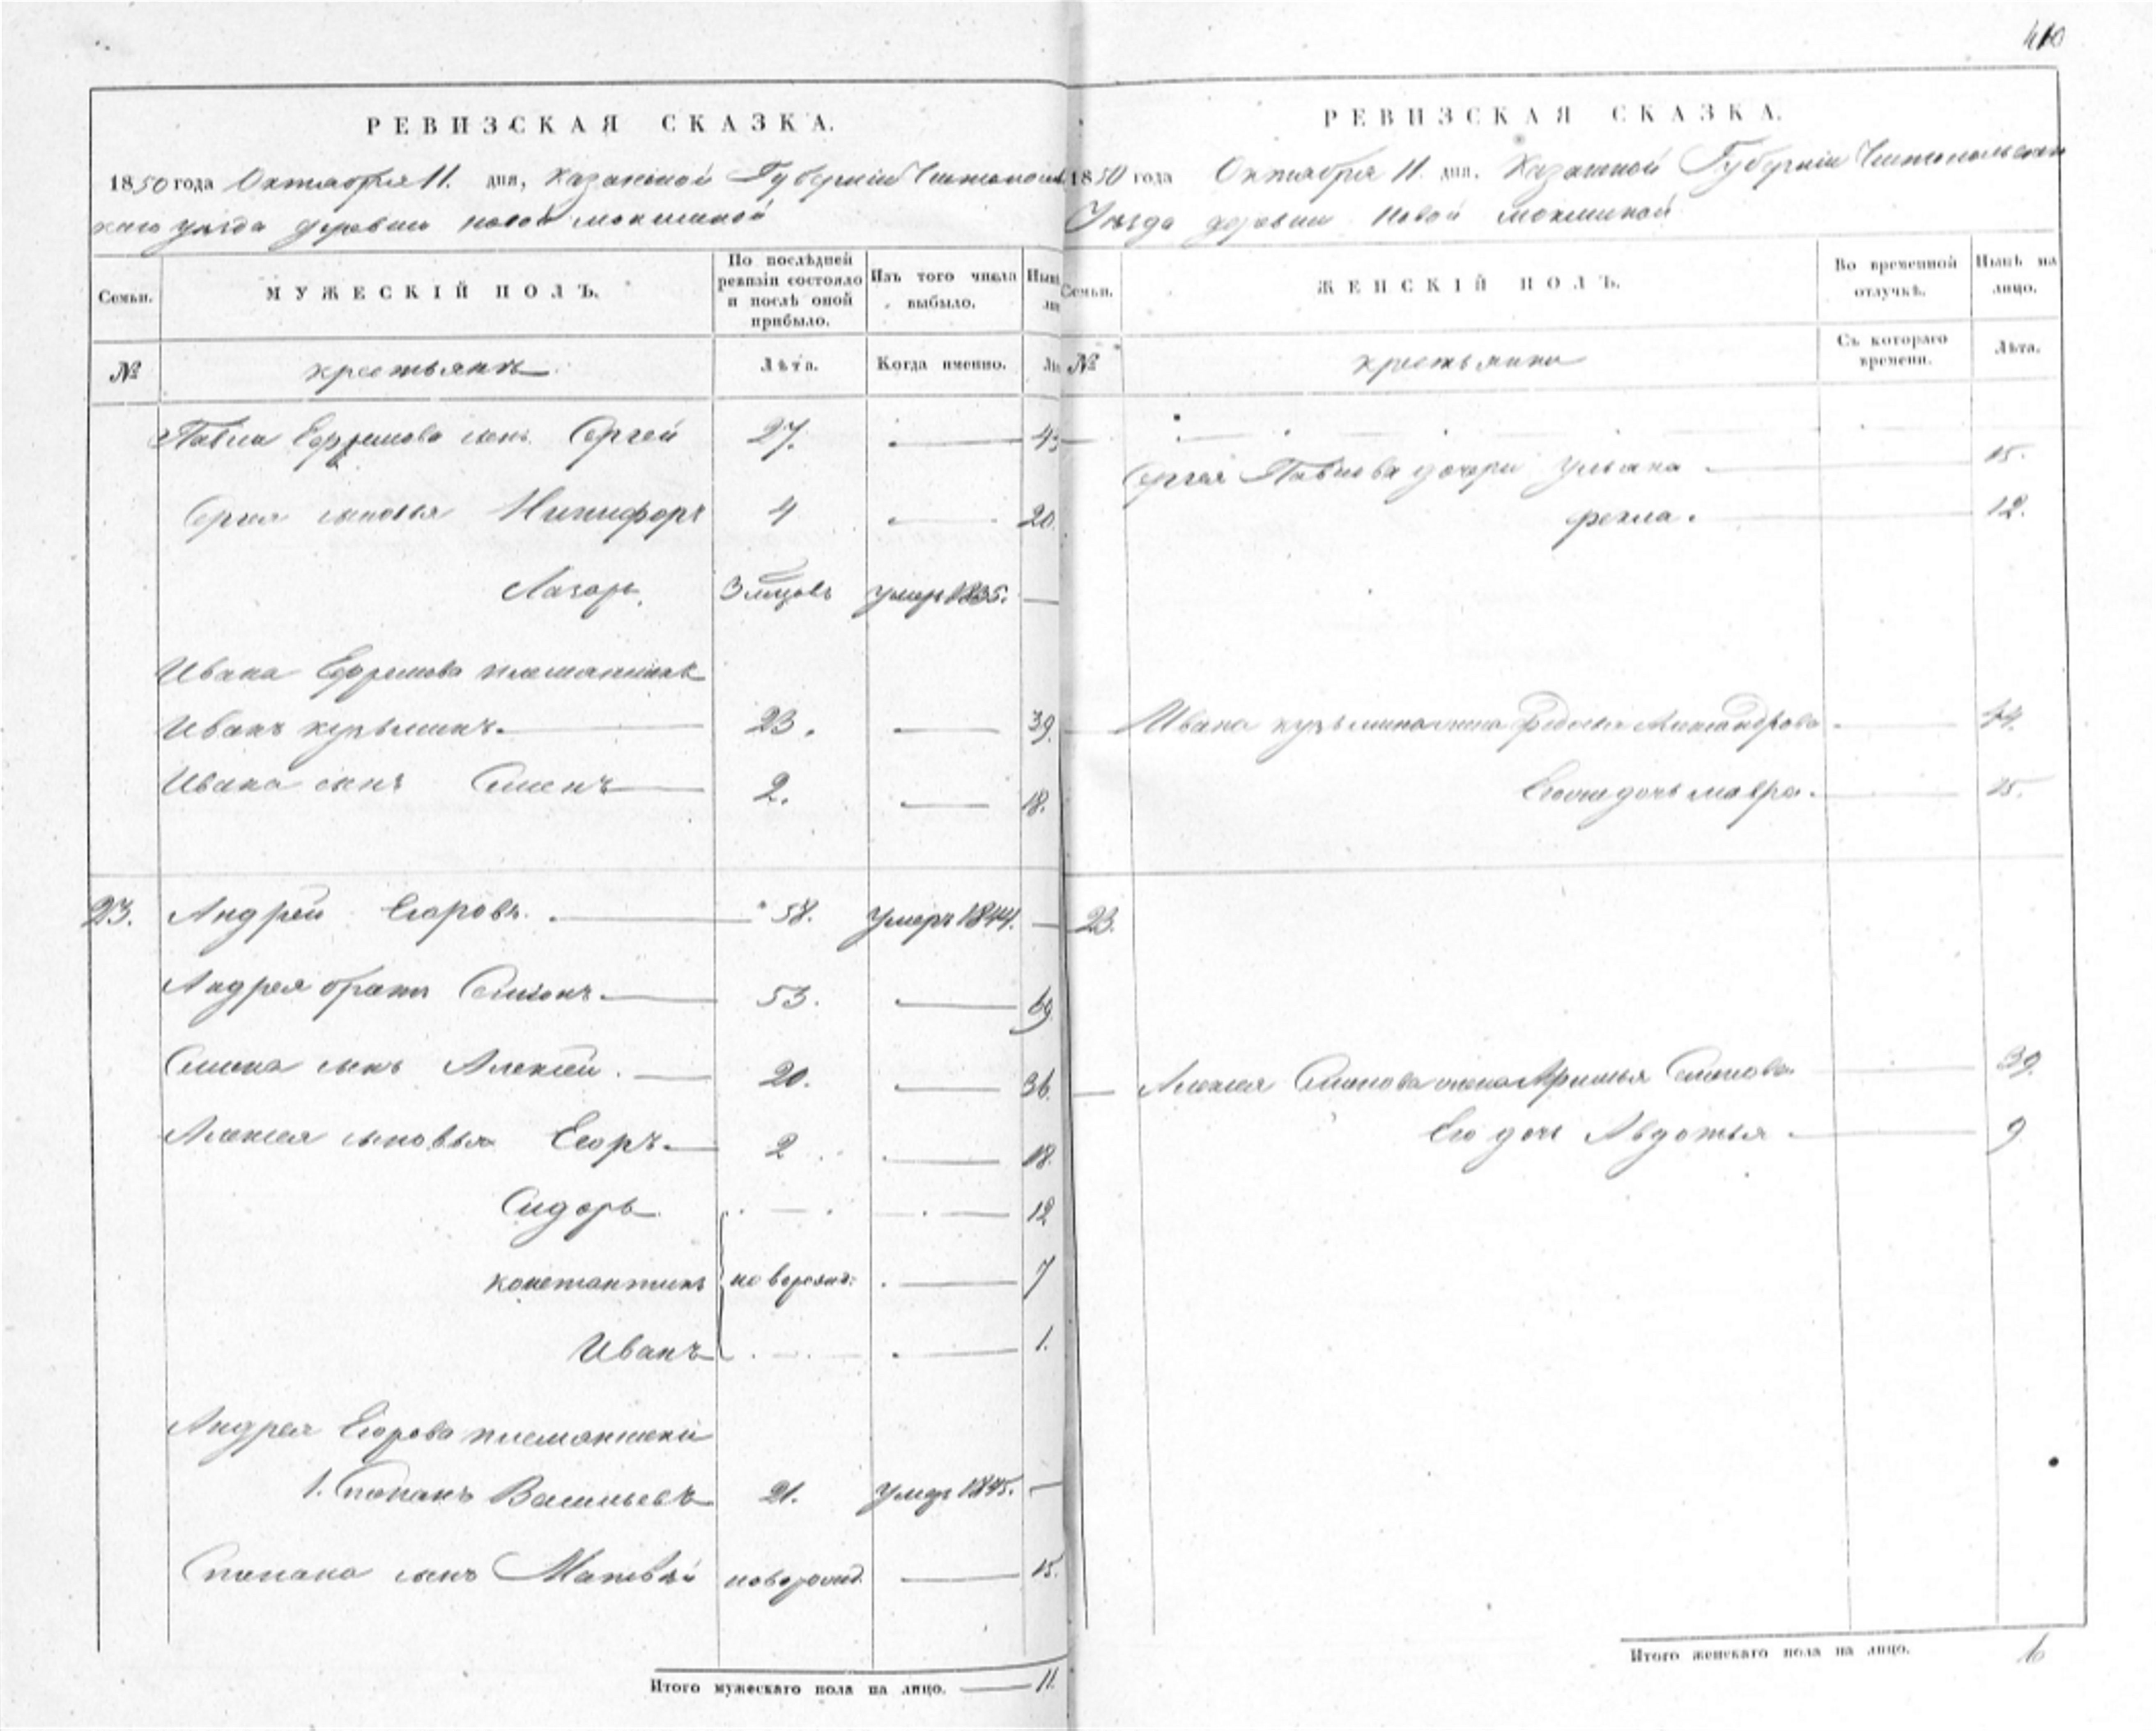 410
РЕВИЗСКАЯ СКАЗКА.
1850 года Октября 11. дня, Казанской Губернии Чистопольс
каго уезда деревни новой мокшиной
Семьи.
МУЖЕСКІЙ ПОЛЪ.
По послѣдней ревизіи состояло и послѣ оной прибыло.
Изъ того числа выбыло.
№
крестьянъ
Лѣта.
Когда именно.
Павла Ефремова сынъ Сергей 27. 43
Сергея сыновья Никифоръ 4 20.
Лазарь 3 мцовъ умеръ 1835.
Ивана Ефремова племянникъ
Иванъ кузьминъ. 23. 39.
Ивана сынъ Семенъ 2. 18.
23. Андрей Егоровъ. 58. умеръ 1844.
Андрея братъ Семионъ 53. 69.
Семена сынъ Алексей. 20. 36.
Алексея сыновья Егоръ 2 18.
Сидоръ 12
константинъ новорожд: 7
Иванъ 1.
Андрея Егорова племянники
1. Степанъ Васильевъ 21. умеръ 1845.
Степана сынъ Матвѣй новорожд. 15.
Итого мужескаго пола на лицо. 11.
РЕВИЗСКАЯ СКАЗКА.
1850 года Октября 11 дня. Казанской Губернии Чистопольскаго
Уезда деревни Новой мокшиной
Семьи.
ЖЕНСКІЙ ПОЛЪ.
Во временной отлучкѣ.
Нынѣ на лицо.
№
крестьянки
Съ котораго времени.
Лѣта.
Сергея Павлова дочери Ульяна 15.
фекла. 12.
Ивана кузьмина жена Федосья Александрова 44.
Егоже дочь мавра. 15.
23.
Алексея Семионова жена Аринья Семионова 39.
Его дочь Авдотья 9
Итого женскаго пола на лицо. 6